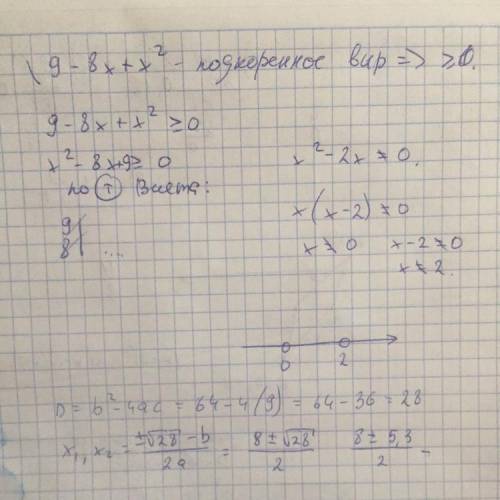 9 - 8x + x² - подкоренное выр => ≥ 0.
9 - 8x + x² ≥ 0
x² - 8x + 9 ≥ 0
по Т Виета:
9
8 ...
x² - 2x ≠ 0.
x(x - 2) ≠ 0
x ≠ 0 x - 2 ≠ 0
x ≠ 2.
0 2
D = b² - 4ac = 64 - 4(9) = 64 - 36 = 28
x₁, x₂ = ±√28 - b / 2a = 8 ± √28 / 2 8 ± 5,3 / 2 -